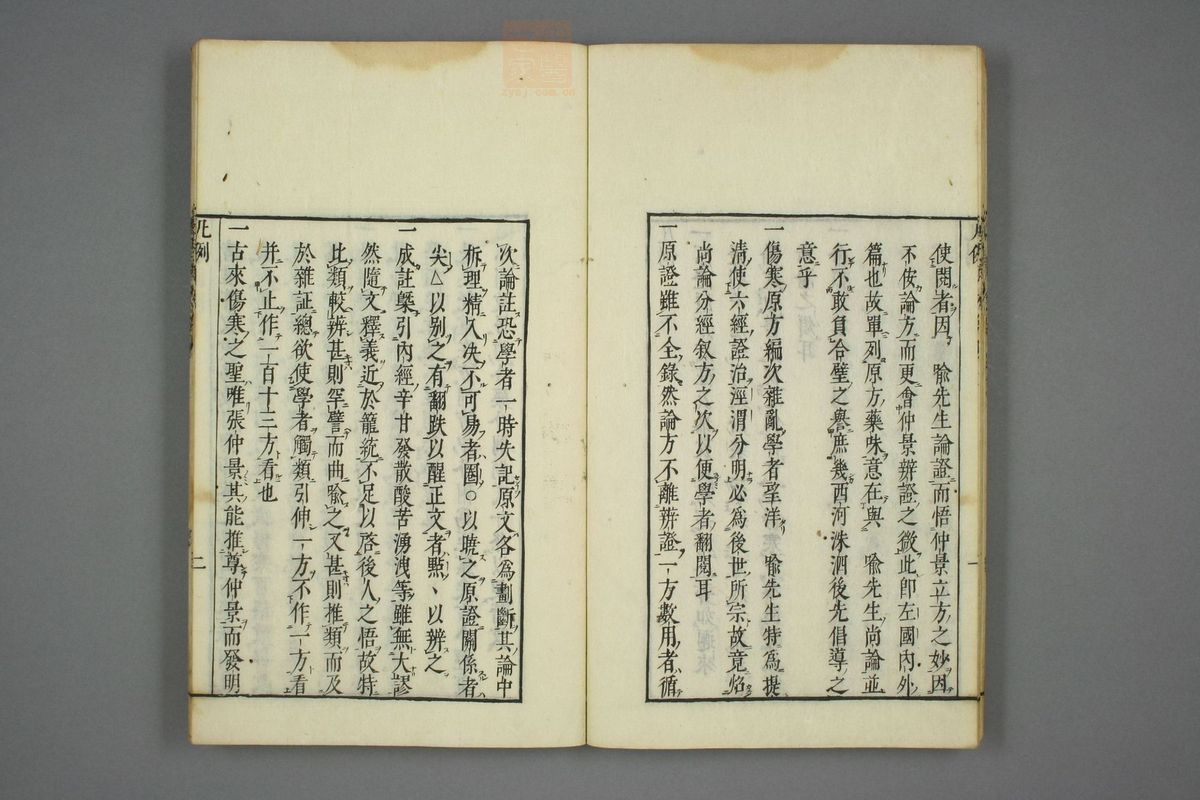 使閱者因　喩先生論證而悟仲景立方之妙因
不侫論方而更會仲景辨證之微此卽左國內外
篇也故單列原方藥味意在與　喩先生尚論並
行不敢負合璧之譽庶幾西河洙泗後先倡導之
意乎
一傷寒原方編次雜亂學者望洋　喩先生特為提
淸使六經證治涇渭分明必為後世所宗故竟焰
尚論分經叙方之次以便學者翻閱耳
一原證雖不全錄然論方不離辨證一方數用者循
一
次論註恐學者一時失記原文各為劃斷其論中
析理精入决不可易者圈○以曉之原證關係者
尖△以別之有翻跌以醒正文者㸃、以辨之
一成註槩引內經辛甘發散酸苦湧洩等雖無大謬
然隨文釋義近於籠統不足以啓後人之悟故特
比類較辨甚則罕譬而曲喩之又甚則推類而及
於雜証總欲使學者觸類引伸一方不作一方看
并不止作一百十三方看也
一古來傷寒之聖唯張仲景其能推尊仲景而發明
凡例
二
zysj.com.cn